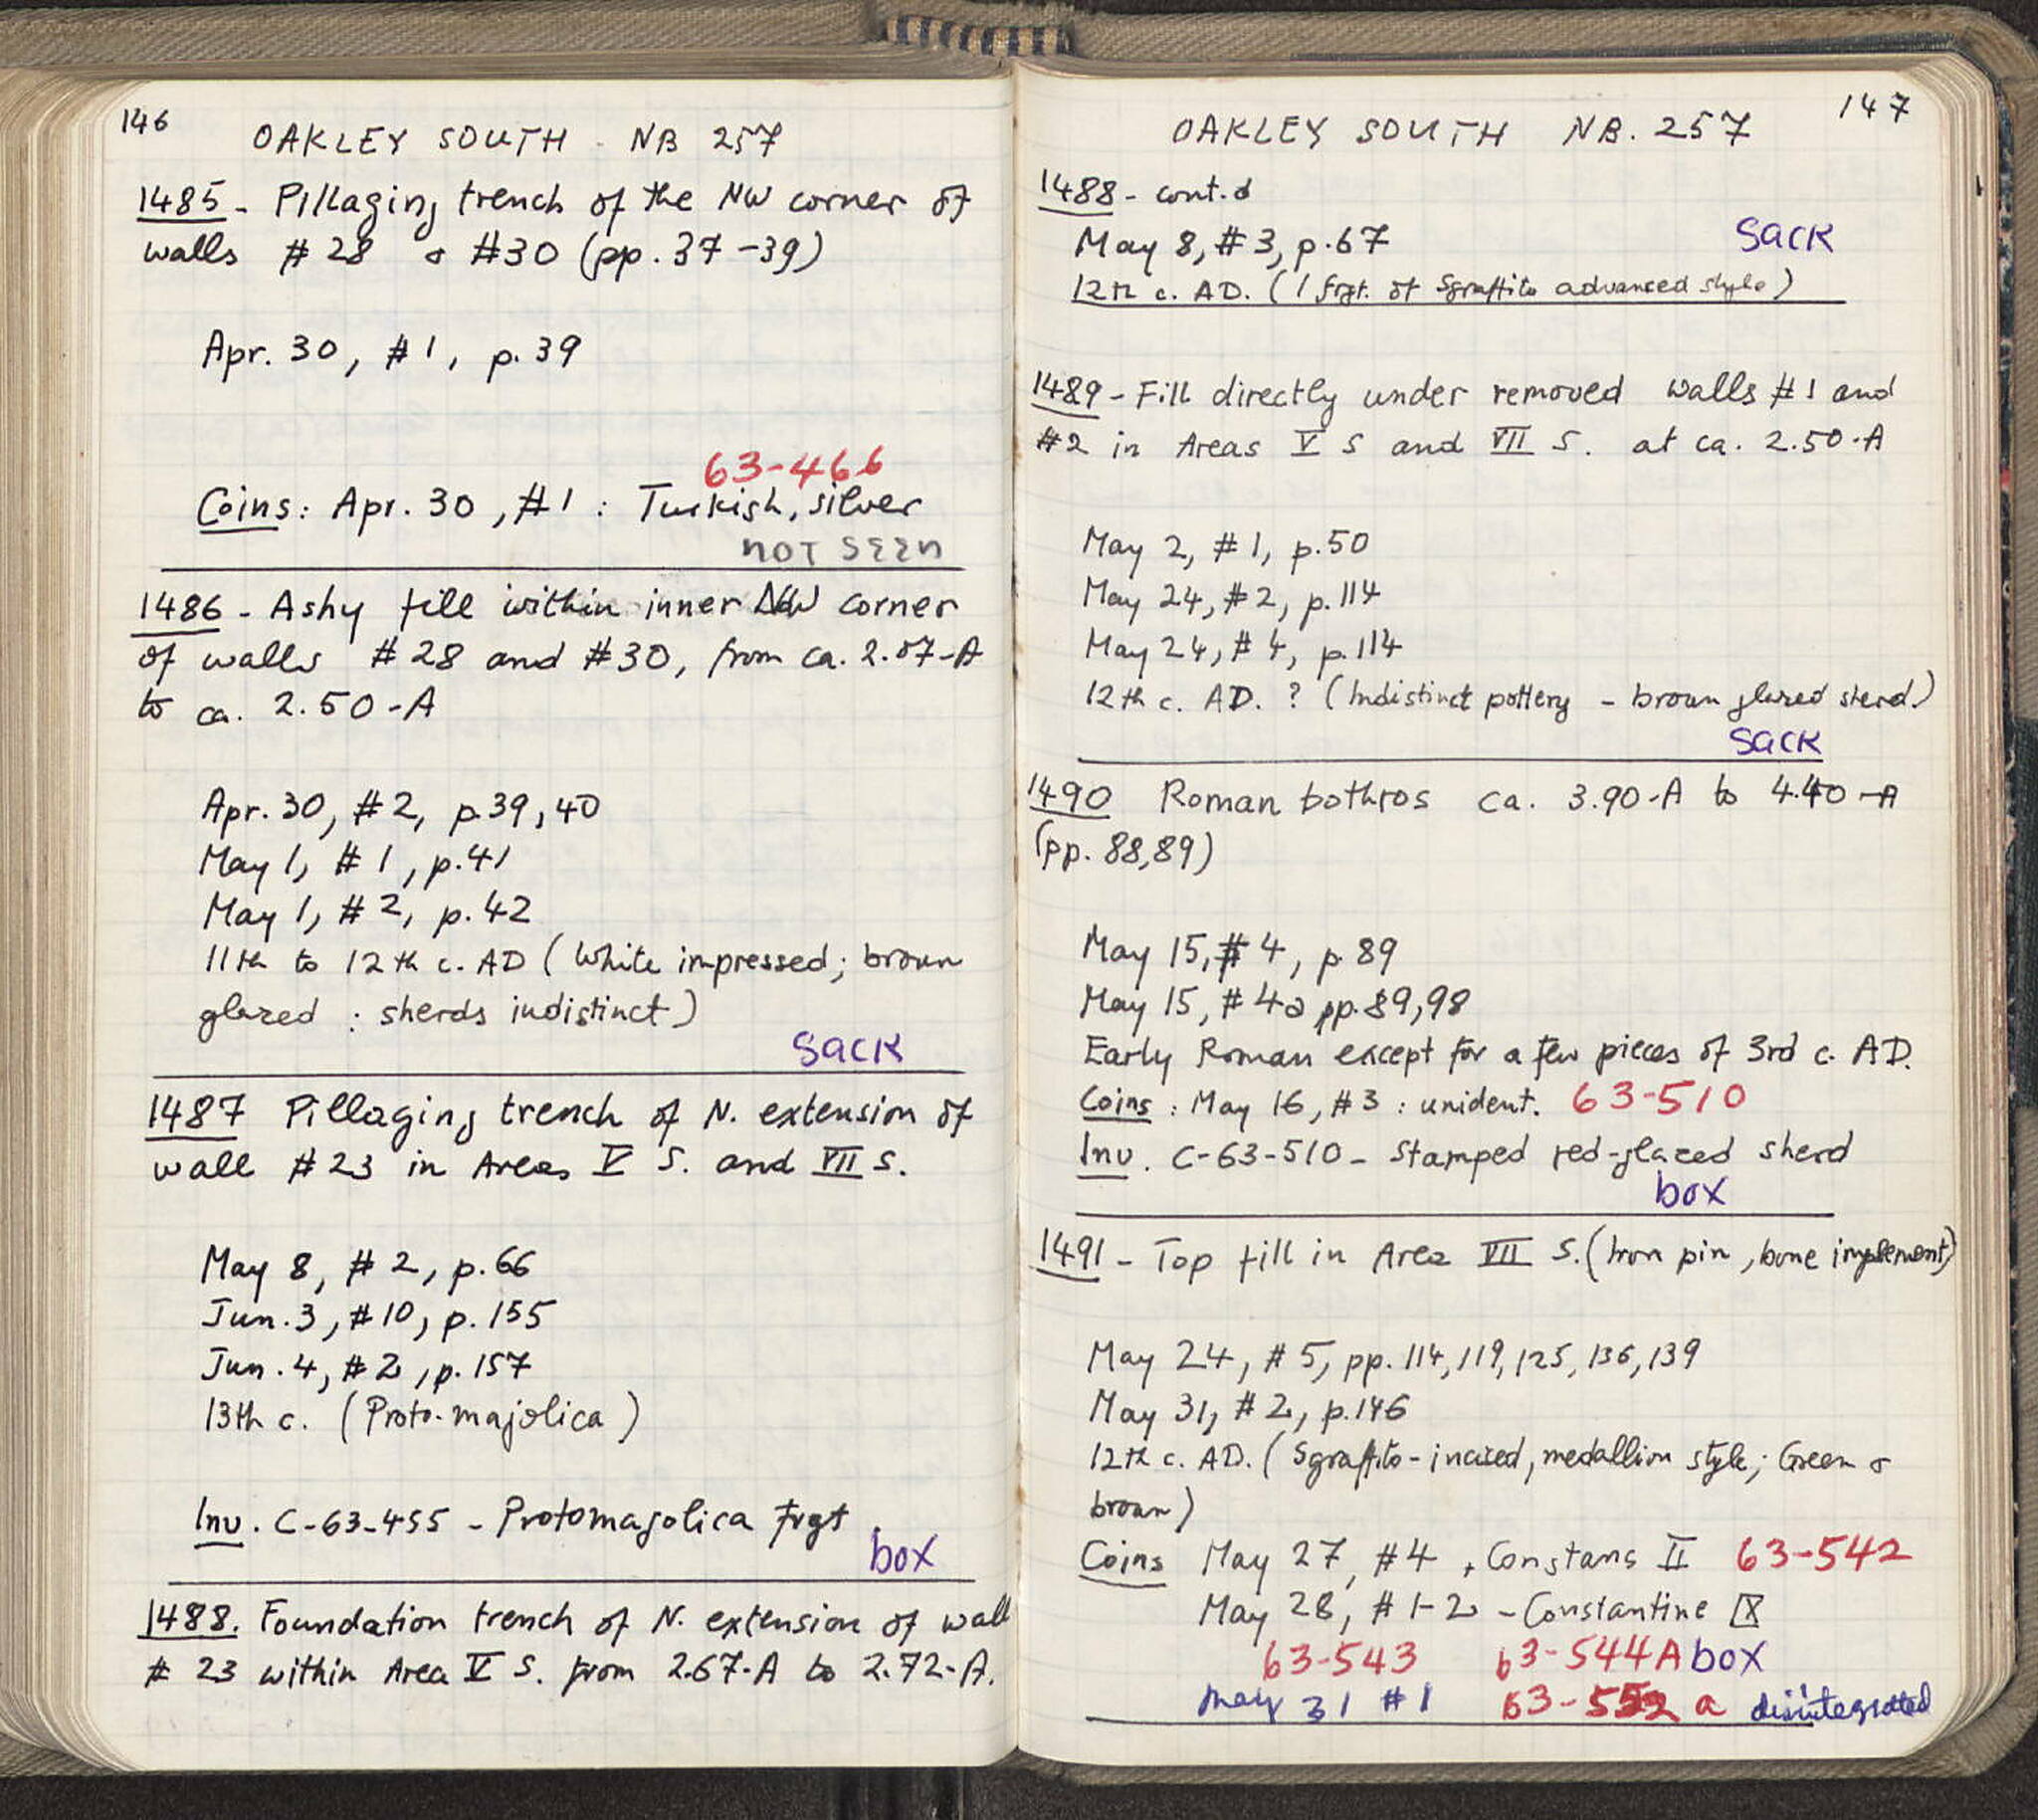 146
OAKLEY SOUTH - NB 257
1485 - Pillaging trench of the NW corner of
walls #28 & #30 (pp. 37-39)
Apr. 30, #1, p. 39
63-466
Coins: Apr. 30, #1 : Turkish, silver
NOT SEEN
1486 - Ashy fill within inner NW corner
of walls #28 and #30, from ca. 2.07-A
to ca. 2.50-A
Apr. 30, #2, p.39,40
May 1, #1, p.41
May 1, #2, p.42
11th to 12th c. AD (White impressed; brown
glazed : sherds indistinct)
sack
1487 Pillaging trench of N. extension of
wall #23 in Areas V S. and VII S.
May 8, #2, p.66
Jun. 3, #10, p.155
Jun. 4, #2, p.157
13th c. (Proto-majolica)
Inv. C-63-455 - Protomajolica frgt.
box
1488. Foundation trench of N. extension of wall
# 23 within Area V S. from 2.67-A to 2.72-A.
147
OAKLEY SOUTH NB. 257
1488 - cont.d
May 8, #3, p.67
sack
12th c. AD. (1 frgt. of Sgraffito advanced style)
1489 - Fill directly under removed walls #1 and
#2 in Areas V S and VII S. at ca. 2.50-A
May 2, #1, p.50
May 24, #2, p.114
May 24, #4, p.114
12th c. AD. ? (Indistinct pottery - brown glazed sherd.)
sack
1490 Roman bothros ca. 3.90-A to 4.40-A
(pp. 88,89)
May 15, #4, p.89
May 15, #4a pp.89,98
Early Roman except for a few pieces of 3rd c. AD.
Coins : May 16, #3 : unident. 63-510
Inv. C-63-510 - Stamped red-glazed sherd
box
1491 - Top fill in Area VII S. (Iron pin, bone implement)
May 24, #5, pp. 114, 119, 125, 136, 139
May 31, #2, p.146
12th c. AD. (Sgraffito-incised, medallion style; Green &
brown)
Coins May 27, #4, Constans II 63-542
May 28, #1-2 - Constantine IX
63-543 63-544A box
May 31 #1 63-552 a disintegrated